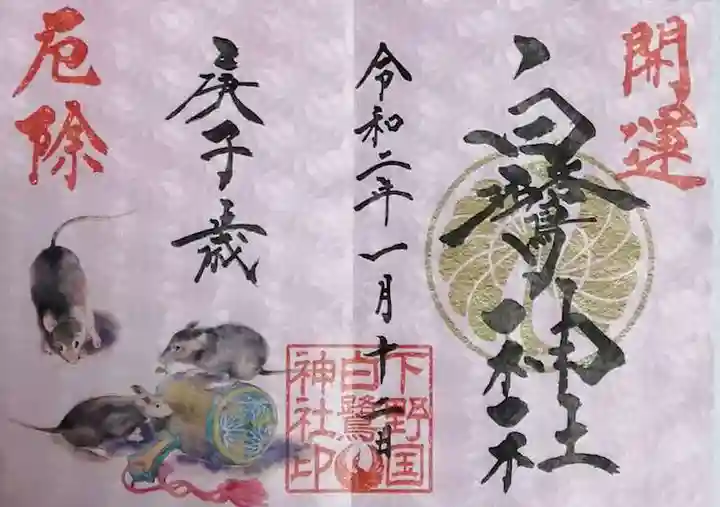 開運
白鷺神社
令和二年一月十二日
下野国
白鷺
神社印
庚子歳
厄除